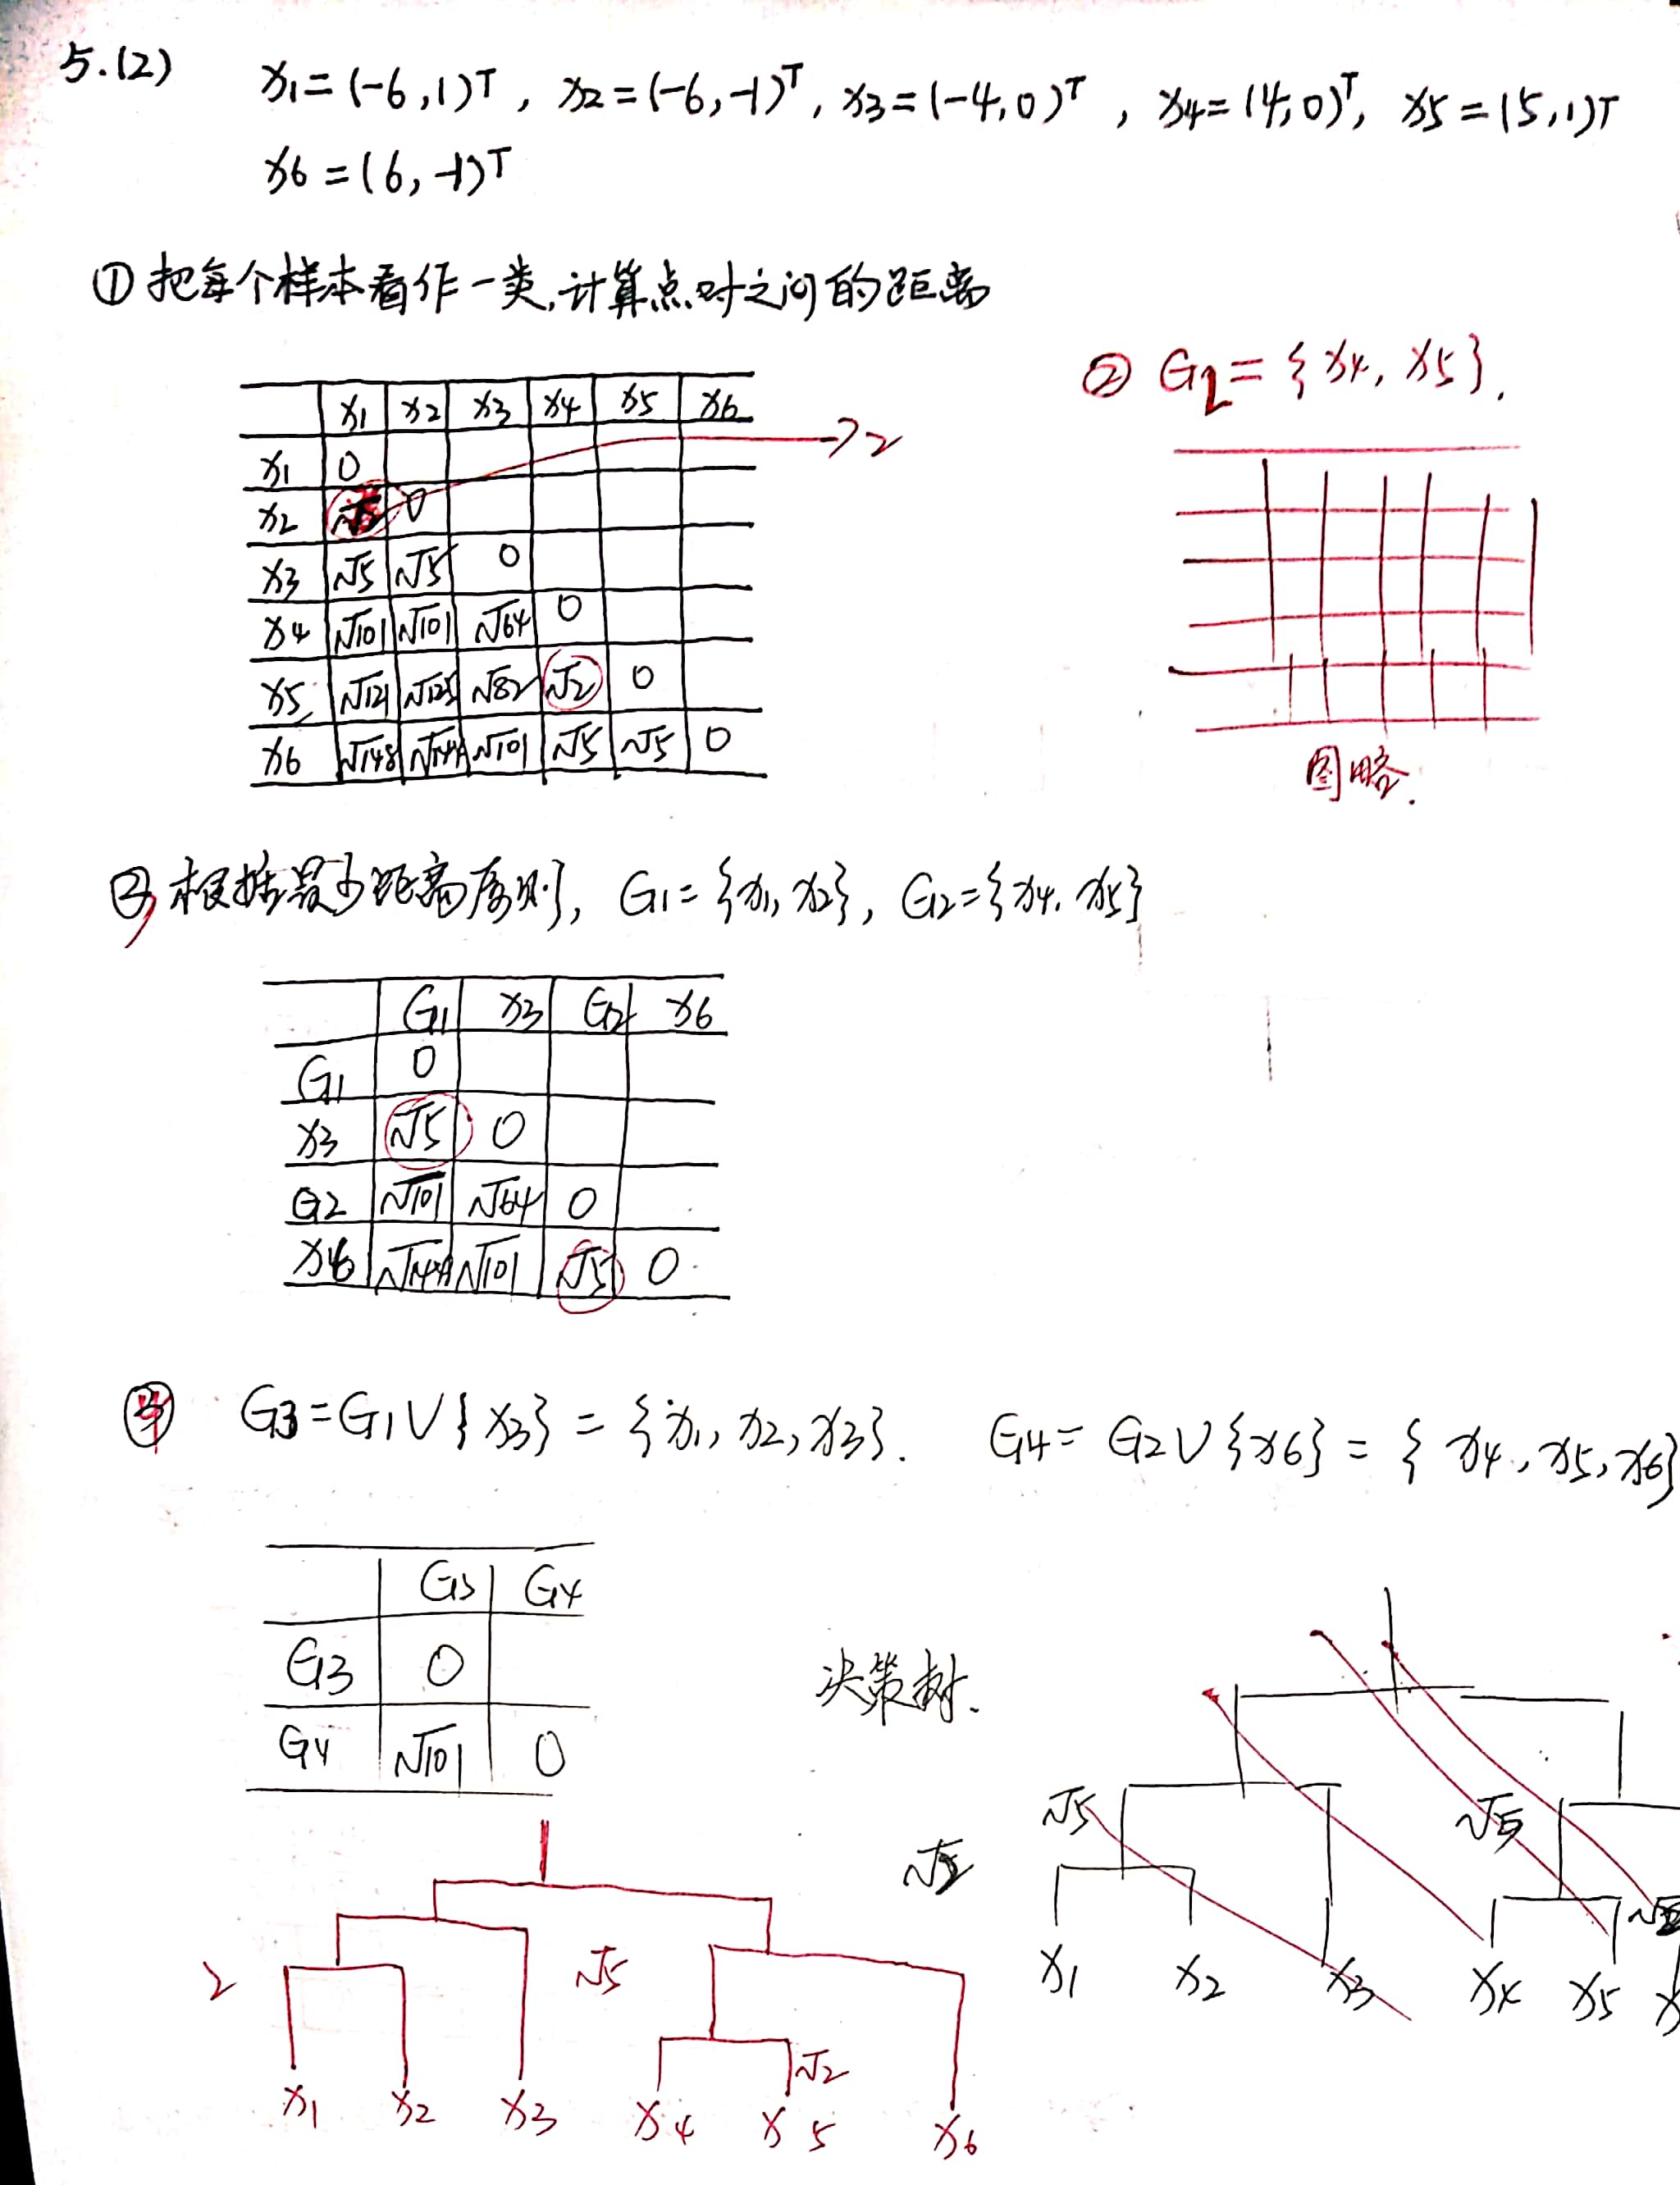 5.(2) x1=(-6,1)T, x2=(-6,-1)T, x3=(-4,0)T, x4=(4,0)T, x5=(5,1)T
x6=(6,-1)T
① 把每个样本看作一类,计算点对之间的距离
x1 x2 x3 x4 x5 x6
x1 0
x2 0 →2
x3 √5 √5 0
x4 √101 √101 √64 0
x5 √121 √125 √82 √2 0
x6 √148 √144 √101 √5 √5 0
② G2={x4, x5}.
图略.
③ 根据最小距离原则, G1={x1, x2}, G2={x4, x5}
G1 x3 G2 x6
G1 0
x3 √5 0
G2 √101 √64 0
x6 √144 √101 √5 0
④ G3=G1∪{x3}={x1, x2, x3}. G4=G2∪{x6}={x4, x5, x6}
G3 G4
G3 0
G4 √101 0
决策树.
√5 √5
√2
x1 x2 x3 x4 x5
2 √5
√2
x1 x2 x3 x4 x5 x6